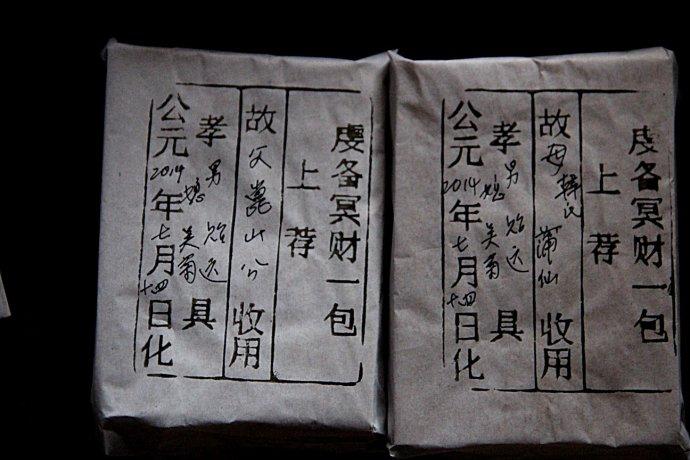 虔备冥财一包
上荐
故父山公收用
孝男远媳菊具
公元2014年七月十四日化
虔备冥财一包
上荐
故母氏蒲仙收用
孝男远媳菊具
公元2014年七月十四日化